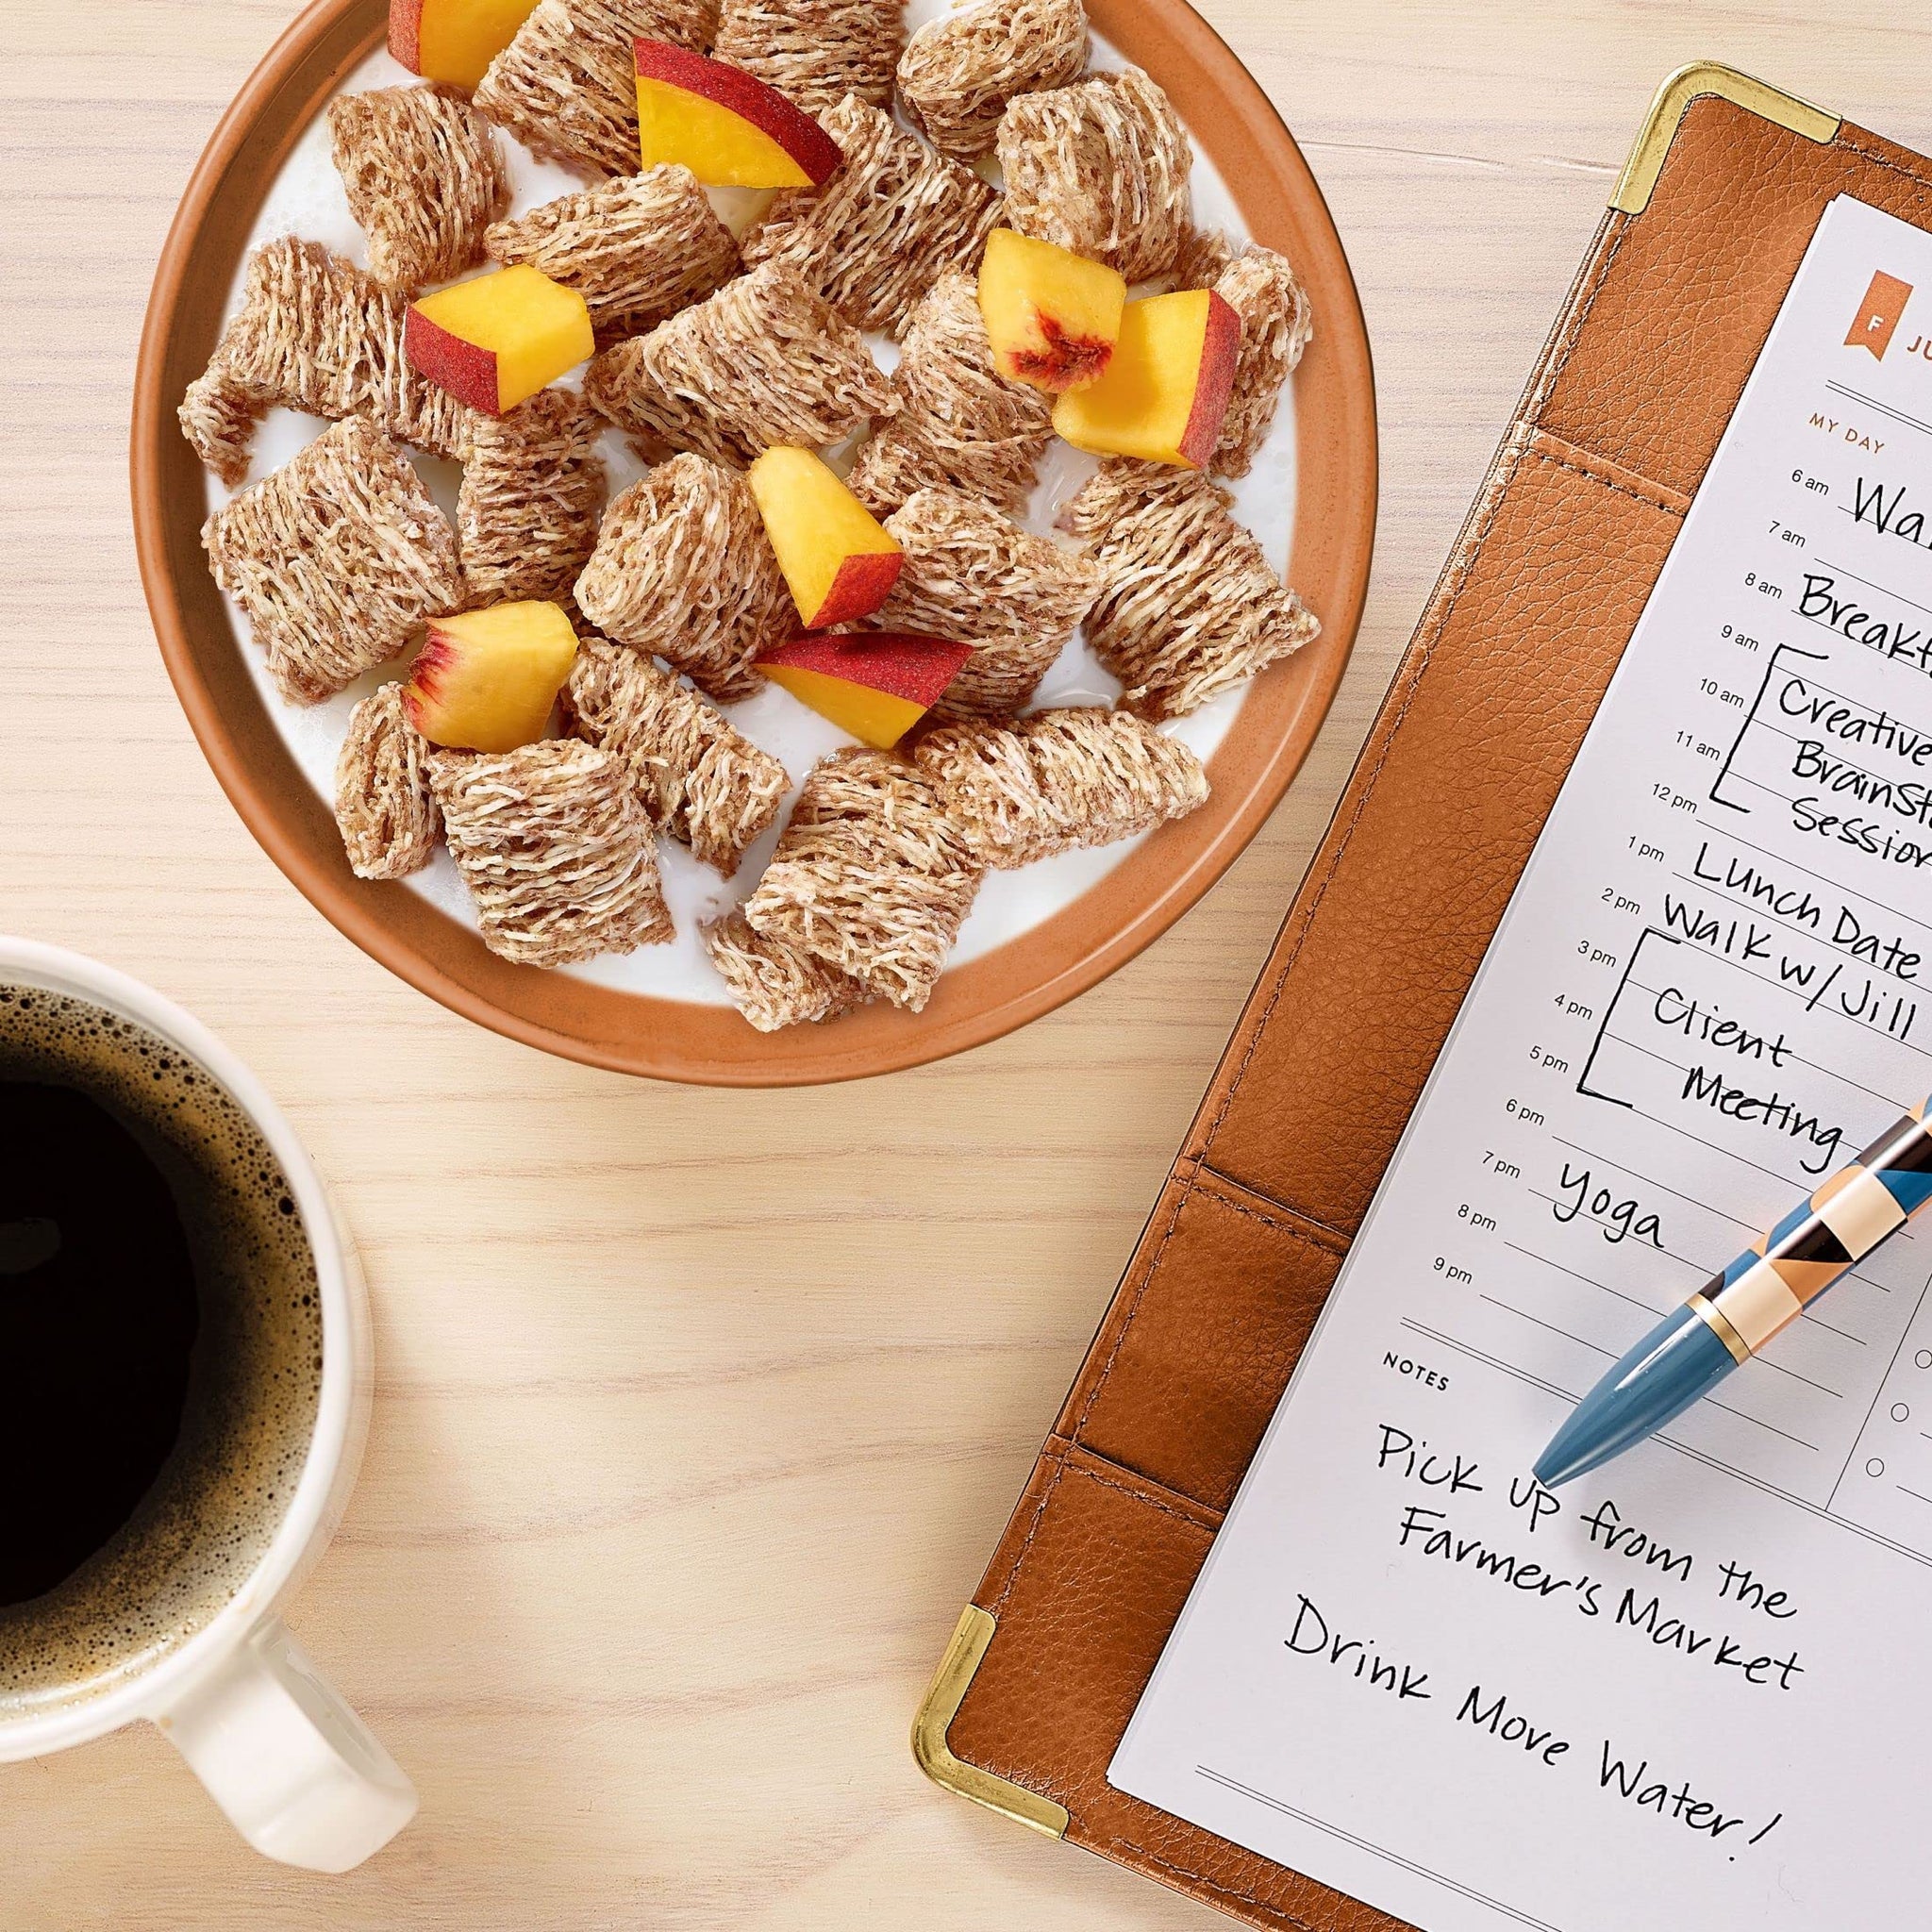 F
MY DAY
6 am
7 am
8 am
9 am
10 am Creative
11 am
12 pm Session
1 pm Lunch Date
2 pm Walk w/ Jill
3 pm
4 pm Client
5 pm Meeting
6 pm
7 pm Yoga
8 pm
9 pm
NOTES
Pick up from the
Farmer's Market
Drink Move Water!